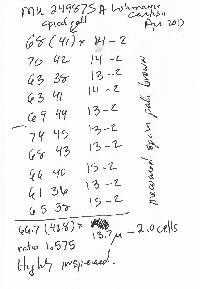 MK 249875 A
apical cell
68 (41) x 14 - 2
70 42 14 - 2
63 38 13 - 2
63 41 14 - 2
69 44 13 - 2
74 45 13 - 2
68 43 13 - 2
66 40 15 - 2
61 36 13 - 2
65 38 15 - 2
measured spores pale brown
66.7 (40.8) x 13.7 µ - 2.0 cells
ratio 1.575
Highly